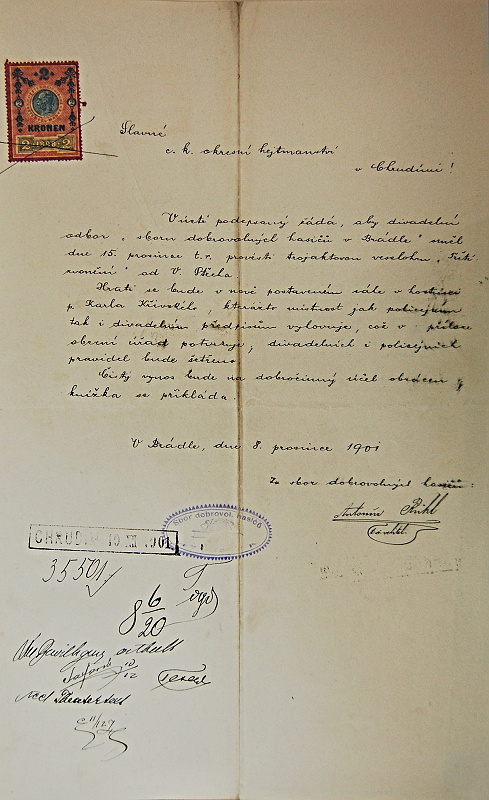 2
KRONEN
2 1898 2
Slavné
c. k. okresní hejtmanství
v Chrudimi!
V úctě podepsaný žádá, aby divadelní
odbor „sboru dobrovolných hasičů v Brádle" směl
dne 15. prosince t. r. provésti trojaktovou veselohru „Třetí
zvonění" od V. Štecha.
Hráti se bude v nově postaveném sále v hostinci
p. Karla Křivského, kterážto místnost jak policejním
tak i divadelním předpisům vyhovuje, což v příloze
obecní úřad potvrzuje; divadelních i policejních
pravidel bude šetřeno.
Čistý výnos bude na dobročinný účel obrácen a
knížka se přikládá.
V Brádle, dne 8. prosince 1901
Za sbor dobrovolných hasičů:
Antonín
Sbor dobrovol. hasičů
CHRUD. 10 XII 1901
35501
8 6/20
Bewilligung ertheilt
12/12